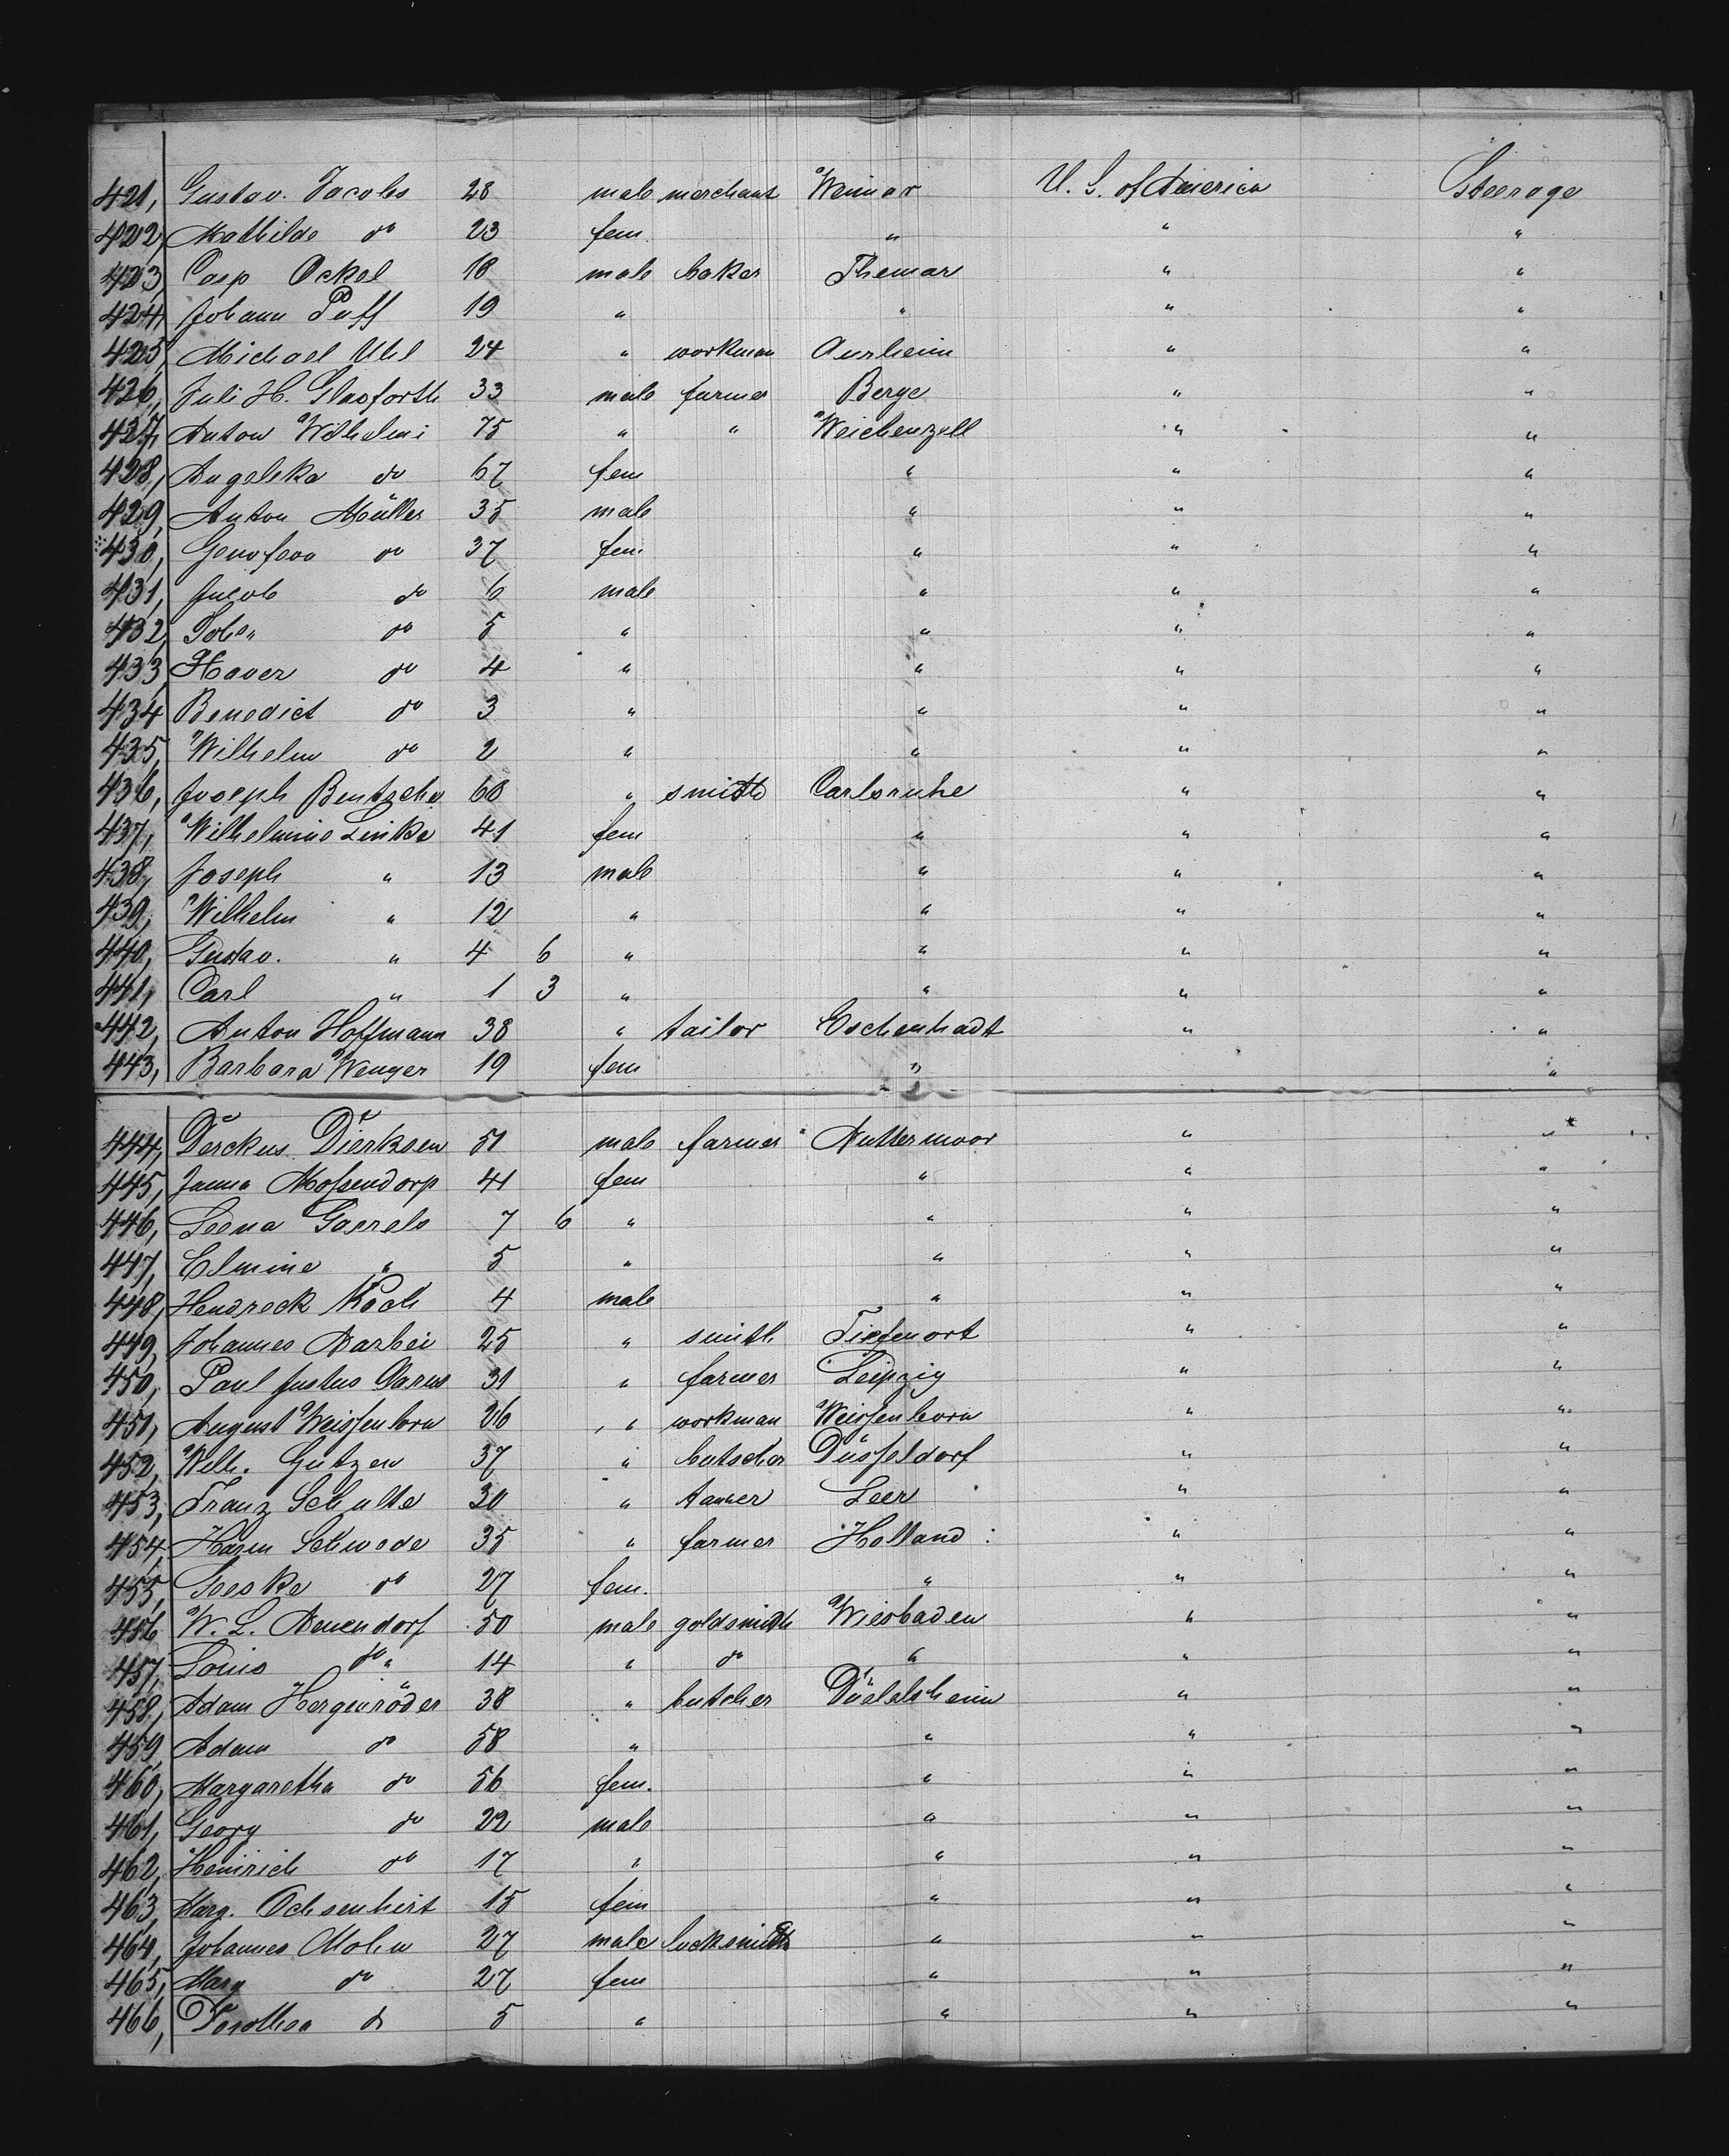 421, Gustav. Jacobs 28 male merchant Weimar U. S. of America Steerage
422, Mathilde do 23 fem. " " "
423, Casp Ockel 18 male baker Themar " "
424, Johann Puff 19 " " " "
425, Michael Uhl 24 " workman Aurheim " "
426, Juli H. Glasforth 33 male farmer Berge " "
427, Anton Wilhelmi 75 " " Weichenzell " "
428, Angelika do 67 fem " " "
429, Anton Müller 35 male " " "
430, Genofeva do 37 fem " " "
431, Jacob do 6 male " " "
432, do 5 " " " "
433, Xaver do 4 " " " "
434 Benedict do 3 " " " "
435, Wilhelm do 2 " " " "
436, Joseph Bentsche 60 " smith Carlsruhe " "
437, Wilhelmine Linke 41 fem " " "
438, Joseph " 13 male " " "
439, Wilhelm " 12 " " " "
440, Gustav. " 4 6 " " " "
441, Carl " 1 3 " " " "
442, Anton Hoffmann 38 " tailor Eschenhadt " "
443, Barbara Wenger 19 fem " "
444, Derckus Dierksen 51 male farmer Nuttermoor " "
445, Janna 41 fem " " "
446, Leena Garrels 7 6 " " " "
447, Elmine " 5 " " " "
448, Hendreck Koch 4 male " " "
449, Johannes Narbei 25 " smith Tiefenort " "
450, Paul Justus 31 " farmer Leipzig " "
451, August Weissenborn 26 " workman Weissenborn " "
452, Wilh. Gützen 37 " butscher Düsseldorf " "
453, Franz Schulte 30 " tanner Leer " "
454, Harm Schwede 35 " farmer Holland " "
455, Geeske do 27 fem. " " "
456 W. L. Neuendorf 50 male goldsmith Wiesbaden " "
457, Louis do " 14 " do " " "
458, Adam Hergenröder 38 " butcher Düdelsheim " "
459, Adam do 58 " " " "
460, Margaretha do 56 fem. " " "
461, Georg do 22 male " " "
462, Heinrich do 17 " " " "
463, Marg. Ochsenhirt 15 fem " " "
464, Johannes Mohn 27 male locksmith " " "
465, Marg do 27 fem " " "
466, Dorothea do 5 " " " "